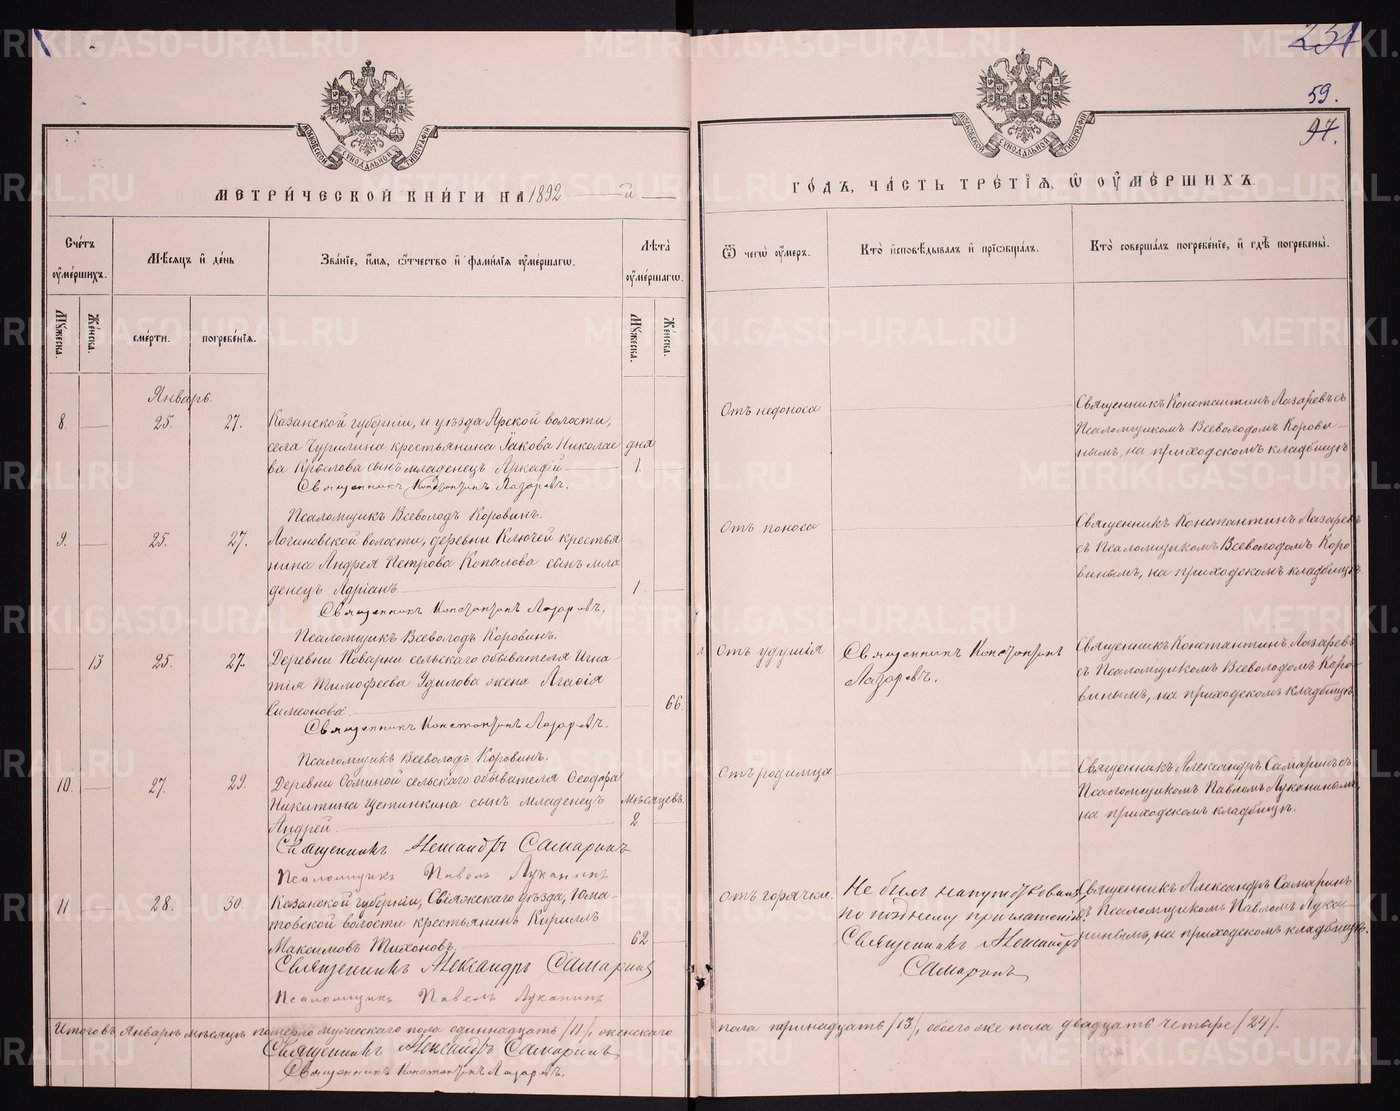 231
59.
97.
МОСКОВСКОЙ СѴНОДАЛЬНОЙ ТИПОГРАФІИ
МОСКОВСКОЙ СѴНОДАЛЬНОЙ ТИПОГРАФІИ
МЕТРИ́ЧЕСКОЙ КНИ́ГИ НА 1892 й
ГО́ДЪ, ЧА́СТЬ ТРЕ́ТІѦ, Ѿ ОУ҆МЕ́РШИХЪ.
Сче́тъ оу҆ме́ршихъ.
Мѣ́сѧцъ и҆ де́нь
Зва́нїе, и҆́мѧ, ѻ҆́тчество и҆ фами́лїѧ оу҆ме́ршагѡ.
Лѣ́та оу҆ме́ршагѡ.
Ѿ чегѡ̀ оу҆́меръ.
Кто̀ и҆сповѣ́дывалъ и҆ прїѡбща́лъ.
Кто̀ соверша́лъ погребе́нїе, и҆ гдѣ̀ погребены̀.
Мꙋ́жеска.
Же́нска.
сме́рти.
погребе́нїѧ.
Мꙋ́жеска.
Же́нска.
Январь.
8.
25.
27.
Казанской губерніи, и уѣзда Арской волости,
села Чурилина крестьянина Іакова Николае
ва Крылова сынъ младенец Аркадій
Священникъ Константинъ Лазаревъ.
Псаломщикъ Всеволодъ Коровинъ.
дня
1.
Отъ недоноса
Священникъ Константинъ Лазаревъ съ
Псаломщикомъ Всеволодомъ Корови-
нымъ, на приходскомъ кладбищѣ
9.
25.
27.
Логиновской волости, деревни Ключей крестья
нина Андрея Петрова Копылова сынъ мла
денецъ Адріанъ
Священникъ Константинъ Лазаревъ.
Псаломщикъ Всеволодъ Коровинъ.
1
Отъ поноса
Священникъ Константинъ Лазаревъ
съ Псаломщикомъ Всеволодомъ Коро
винымъ, на приходскомъ кладбищѣ.
13
25.
27.
Деревни Поварни сельскаго обывателя Игна
тія Тимофеева Удилова жена Агафія
Симеонова.
Священникъ Константинъ Лазаревъ.
Псаломщикъ Всеволодъ Коровинъ.
66.
Отъ удушія
Священникъ Константинъ
Лазаревъ.
Священникъ Константинъ Лазаревъ
съ Псаломщикомъ Всеволодомъ Коро-
винымъ, на приходскомъ кладбищѣ
10.
27.
29.
Деревни Осминой сельскаго обывателя Ѳеодора
Никитина Щетинкина сынъ младенецъ
Андрей.
Священникъ Александръ Самаринъ
Псаломщикъ Павелъ Луканинъ
мѣсяцевъ.
2
Отъ родимца
Священникъ Александръ Самаринъ съ
Псаломщикомъ Павломъ Луканинымъ,
на приходскомъ кладбищѣ.
11.
28.
30.
Казанской губерніи, Свіяжскаго уѣзда, Юма-
товской волости крестьянинъ Кириллъ
Максимовъ Тихоновъ.
Священникъ Александръ Самаринъ
Псаломщикъ Павелъ Луканинъ
62
Отъ горячки.
Не былъ напутствованъ
по позднему приглашенію.
Священникъ Александръ
Самаринъ
Священникъ Александръ Самаринъ
съ Псаломщикомъ Павломъ Лукан-
инымъ, на приходскомъ кладбищѣ.
Итого въ Январѣ мѣсяцѣ померло мужескаго пола одиннадцать /11/, женскаго
пола тринадцать /13/, обоего же пола двадцать четыре /24/.
Священникъ Александръ Самаринъ
Священникъ Константинъ Лазаревъ.
METRIKI.GASO-URAL.RU